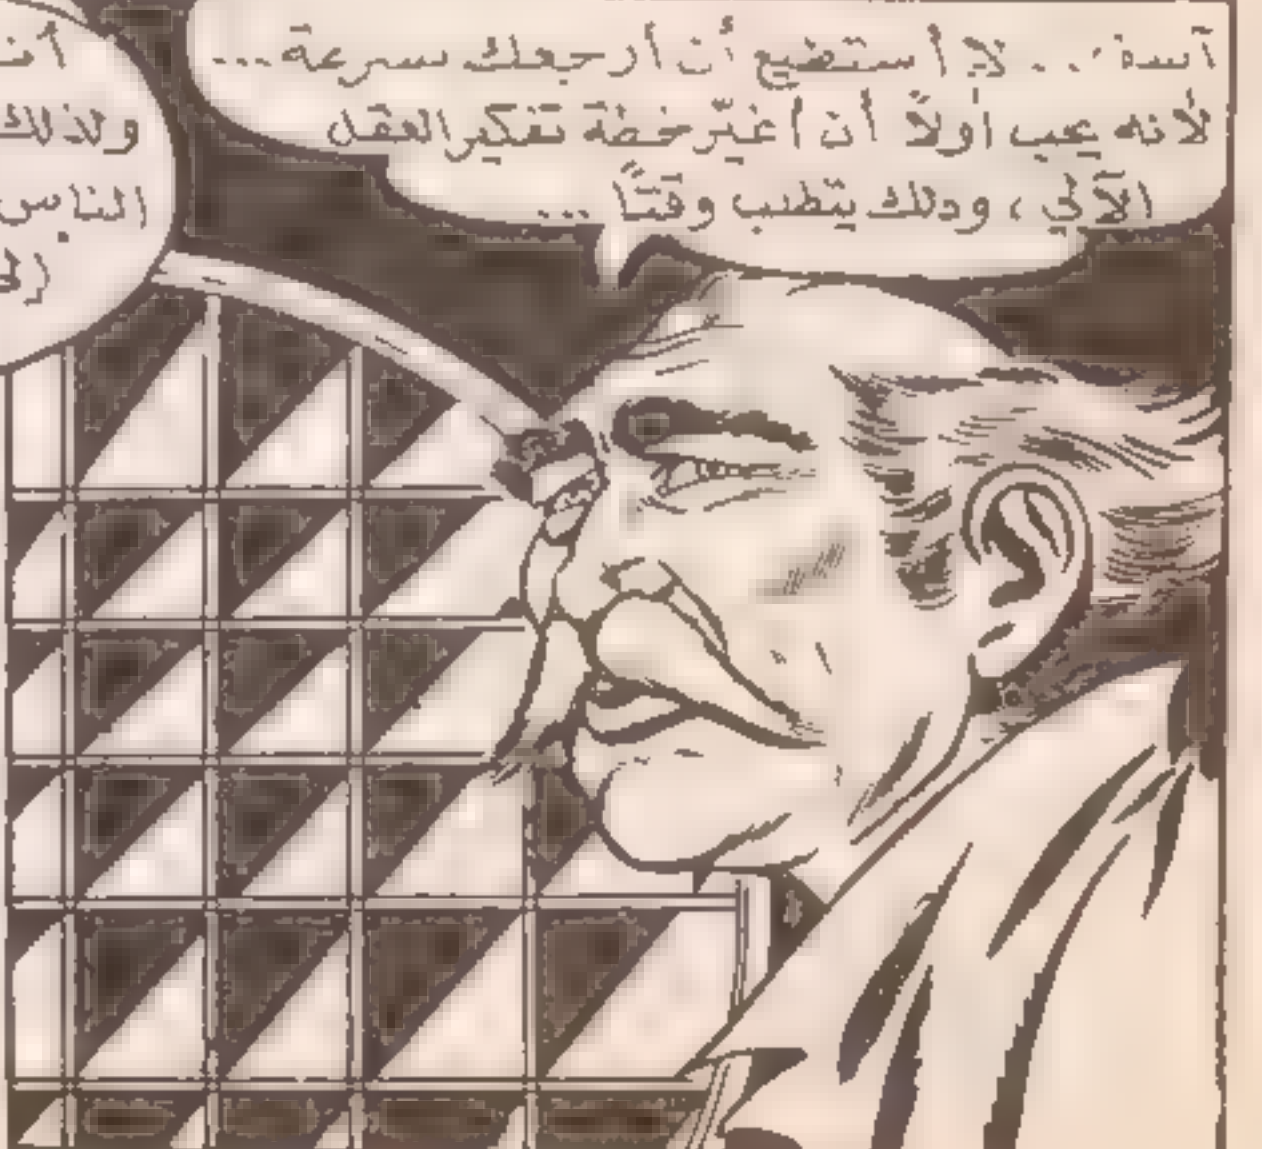 آسف... لا أستطيع أن أرجعك بسرعة...
لأنه يجب أولاً أن أغيّر خطة تفكير العقل
الآلي ، وذلك يتطلب وقتًا ...
ولذلك
الناس